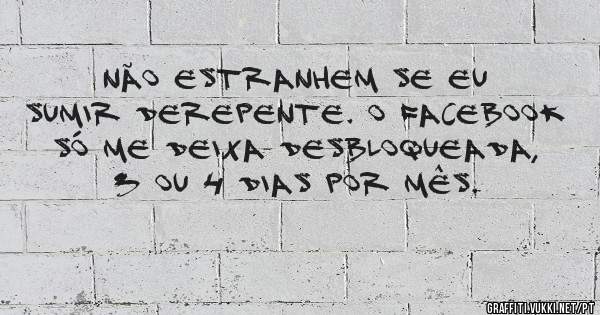 NÃO ESTRANHEM SE EU
SUMIR DEREPENTE. O FACEBOOK
SÓ ME DEIXA DESBLOQUEADA,
3 OU 4 DIAS POR MÊS.
GRAFFITI.VUKKI.NET/PT